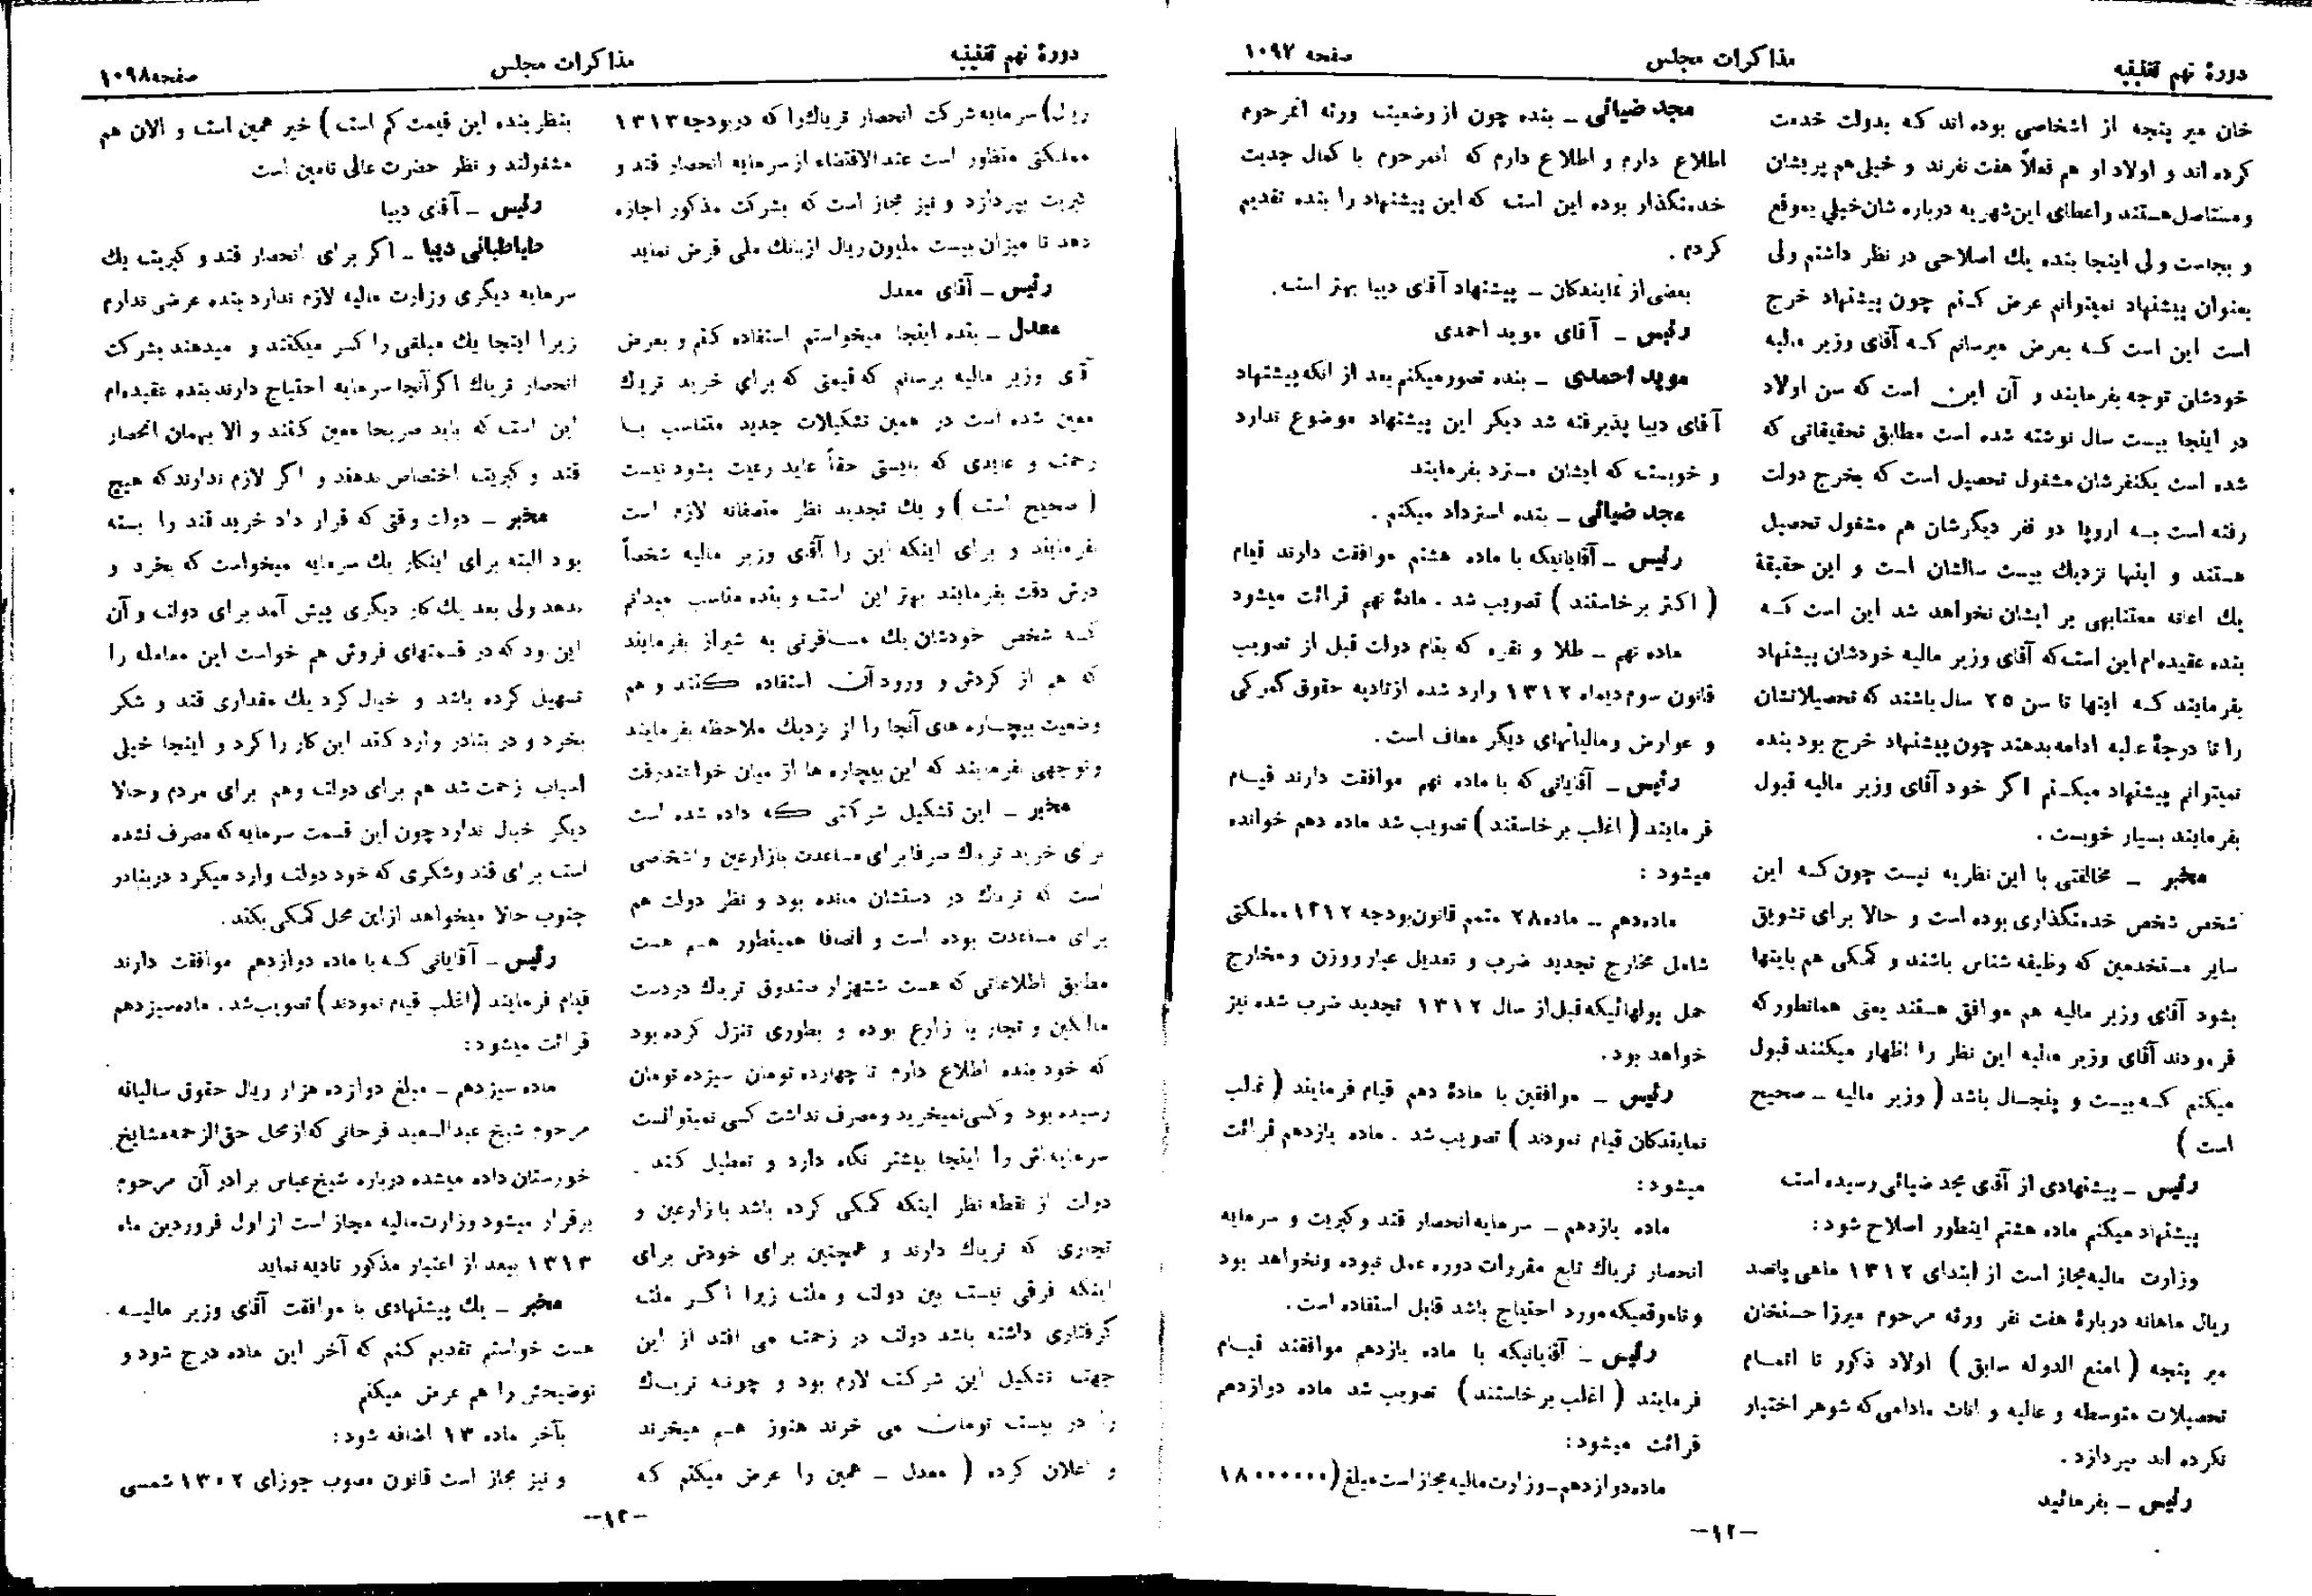 دورهٔ نهم تقنینیه
مذاکرات مجلس
صفحه ۱۰۹۷
خان میر پنجه از اشخاصی بوده اند که بدولت خدمت
کرده اند و اولاد او هم فعلاً هفت نفرند و خیلی هم پریشان
و مستأصل هستند و اعطای این شهریه درباره شان خیلی بموقع
و بجاست ولی اینجا بنده یك اصلاحی در نظر داشتم ولی
بعنوان پیشنهاد نمیتوانم عرض کنم چون پیشنهاد خرج
است این است که بعرض میرسانم که آقای وزیر مالیه
خودشان توجه بفرمایند و آن این است که سن اولاد
در اینجا بیست سال نوشته شده است مطابق تحقیقاتی که
شده است یکنفرشان مشغول تحصیل است که بخرج دولت
رفته است به اروپا دو نفر دیگرشان هم مشغول تحصیل
هستند و اینها نزدیك بیست سالشان است و این حقیقة
یك اعانه معتنابهی بر ایشان نخواهد شد این است که
بنده عقیده‌ام این است که آقای وزیر مالیه خودشان پیشنهاد
بفرمایند که اینها تا سن ۲۵ سال باشند که تحصیلاتشان
را تا درجهٔ عالیه ادامه بدهند چون پیشنهاد خرج بود بنده
نمیتوانم پیشنهاد میکنم اگر خود آقای وزیر مالیه قبول
بفرمایند بسیار خوبست .
مخبر ـ مخالفتی با این نظریه نیست چون که این
شخص شخص خدمتگذاری بوده است و حالا برای تشویق
سایر مستخدمین که وظیفه شناس باشند و کمکی هم باینها
بشود آقای وزیر مالیه هم موافق هستند یعنی همانطور که
فرمودند آقای وزیر مالیه این نظر را اظهار میکنند قبول
میکنم که بیست و پنجسال باشد ( وزیر مالیه ـ صحیح
است )
رئیس ـ پیشنهادی از آقای مجد ضیائی رسیده است
پیشنهاد میکنم ماده هشتم اینطور اصلاح شود :
وزارت مالیه مجاز است از ابتدای ۱۳۱۲ ماهی پانصد
ریال ماهانه دربارهٔ هفت نفر ورثه مرحوم میرزا حسنخان
میر پنجه ( امنع الدوله سابق ) اولاد ذکور تا اتمام
تحصیلات متوسطه و عالیه و اناث مادامی که شوهر اختیار
نکرده اند بپردازد .
رئیس ـ بفرمائید
مجد ضیائی ـ بنده چون از وضعیت ورثه آنمرحوم
اطلاع دارم و اطلاع دارم که آنمرحوم با کمال جدیت
خدمتگذار بوده این است که این پیشنهاد را بنده تقدیم
کردم .
بعضی از نمایندگان ـ پیشنهاد آقای دیبا بهتر است .
رئیس ـ آقای موید احمدی
موید احمدی ـ بنده تصور میکنم بعد از آنکه پیشنهاد
آقای دیبا پذیرفته شد دیگر این پیشنهاد موضوع ندارد
و خوبست که ایشان مسترد بفرمایند
مجد ضیائی ـ بنده استرداد میکنم .
رئیس ـ آقایانیکه با ماده هشتم موافقت دارند قیام
( اکثر برخاستند ) تصویب شد . مادهٔ نهم قرائت میشود
ماده نهم ـ طلا و نقره که بنام دولت قبل از تصویب
قانون سوم دیماه ۱۳۱۲ وارد شده از تادیه حقوق گمرکی
و عوارض و مالیاتهای دیگر معاف است .
رئیس ـ آقایانی که با ماده نهم موافقت دارند قیام
فرمایند ( اغلب برخاستند ) تصویب شد ماده دهم خوانده
میشود :
ماده‌دهم ـ ماده ۲۸ متمم قانون بودجه ۱۳۱۲ مملکتی
شامل مخارج تجدید ضرب و تعدیل عیار و وزن و مخارج
حمل پولهائیکه قبل از سال ۱۳۱۲ تجدید ضرب شده نیز
خواهد بود .
رئیس ـ موافقین با مادهٔ دهم قیام فرمایند ( اغلب
نمایندگان قیام نمودند ) تصویب شد . ماده یازدهم قرائت
میشود :
ماده یازدهم ـ سرمایه انحصار قند و کبریت و سرمایه
انحصار تریاك تابع مقررات دوره عمل نبوده و نخواهد بود
و تاموقعیکه مورد احتیاج باشد قابل استفاده است .
رئیس ـ آقایانیکه با ماده یازدهم موافقند قیام
فرمایند ( اغلب برخاستند ) تصویب شد ماده دوازدهم
قرائت میشود :
ماده‌دوازدهم ـ وزارت مالیه مجاز است مبلغ (۱۸۰۰۰۰۰۰
ـ۱۲ـ
دورهٔ نهم تقنینیه
مذاکرات مجلس
صفحه ۱۰۹۸
ریال) سرمایه شرکت انحصار تریاك را که در بودجه ۱۳۱۳
مملکتی منظور است عندالاقتضاء از سرمایه انحصار قند و
کبریت بپردازد و نیز مجاز است که بشرکت مذکور اجازه
دهد تا میزان بیست ملیون ریال از بانك ملی قرض نماید
رئیس ـ آقای معدل
معدل ـ بنده اینجا میخواستم استفاده کنم و بعرض
آقای وزیر مالیه برسانم که قیمتی که برای خرید تریاك
معین شده است در همین تشکیلات جدید متناسب با
زحمت و عایدی که بایستی حقاً عاید رعیت بشود نیست
( صحیح است ) و یك تجدید نظر منصفانه لازم است
بفرمایند و برای اینکه این را آقای وزیر مالیه شخصاً
درش دقت بفرمایند بهتر این است و بنده مناسب میدانم
که شخص خودشان یك مسافرتی به شیراز بفرمایند
که هم از گردش و ورود آن استفاده کنند و هم
وضعیت بیچاره های آنجا را از نزدیك ملاحظه بفرمایند
و توجهی بفرمایند که این بیچاره ها از میان خواهند رفت
مخبر ـ این تشکیل شرکتی که داده شده است
برای خرید تریاك صرفا برای مساعدت بازارعین و اشخاصی
است که تریاك در دستشان مانده بود و نظر دولت هم
برای مساعدت بوده است و انصافا همینطور هم هست
مطابق اطلاعاتی که هست ششهزار صندوق تریاك در دست
مالکین و تجار یا زارع بوده و بطوری تنزل کرده بود
که خود بنده اطلاع دارم تا چهارده تومان سیزده تومان
رسیده بود و کسی نمیخرید و مصرف نداشت کسی نمیتوانست
سرمایه‌اش را اینجا بیشتر نگاه دارد و تعطیل کند .
دولت از نقطه نظر اینکه کمکی کرده باشد بازارعین و
تجاری که تریاك دارند و همچنین برای خودش برای
اینکه فرقی نیست بین دولت و ملت زیرا اگر ملت
گرفتاری داشته باشد دولت در زحمت می افتد از این
جهت تشکیل این شرکت لازم بود و چونه تریاك
را در بیست تومان می خرند هنوز هم میخرند
و اعلان کرده ( معدل ـ همین را عرض میکنم که
بنظر بنده این قیمت کم است ) خیر همین است و الان هم
مشغولند و نظر حضرت عالی تامین است
رئیس ـ آقای دیبا
طباطبائی دیبا ـ اگر برای انحصار قند و کبریت یك
سرمایه دیگری وزارت مالیه لازم ندارد بنده عرضی ندارم
زیرا اینجا یك مبلغی را کسر میکنند و میدهند بشرکت
انحصار تریاك اگر آنجا سرمایه احتیاج دارند بنده عقیده‌ام
این است که باید صریحا معین کنند و الا بهمان انحصار
قند و کبریت اختصاص بدهند و اگر لازم ندارند که هیچ
مخبر ـ دولت وقتی که قرار داد خرید قند را بسته
بود البته برای اینکار یك سرمایه میخواست که بخرد و
بدهد ولی بعد یك کار دیگری پیش آمد برای دولت و آن
این بود که در قسمتهای فروش هم خواست این معامله را
تسهیل کرده باشد و خیال کرد یك مقداری قند و شکر
بخرد و در بنادر وارد کند این کار را کرد و اینجا خیلی
اسباب زحمت شد هم برای دولت وهم برای مردم و حالا
دیگر خیال ندارد چون این قسمت سرمایه که مصرف نشده
است برای قند و شکری که خود دولت وارد میکرد در بنادر
جنوب حالا میخواهد از این محل کمکی بکند .
رئیس ـ آقایانی که با ماده دوازدهم موافقت دارند
قیام فرمایند (اغلب قیام نمودند) تصویب شد . ماده سیزدهم
قرائت میشود :
ماده سیزدهم ـ مبلغ دوازده هزار ریال حقوق سالیانه
مرحوم شیخ عبدالسعید فرحانی که از محل حق‌الزحمه مشایخ
خوزستان داده میشده درباره شیخ عباس برادر آن مرحوم
برقرار میشود وزارت مالیه مجاز است از اول فروردین ماه
۱۳۱۳ ببعد از اعتبار مذکور تادیه نماید
مخبر ـ یك پیشنهادی با موافقت آقای وزیر مالیه
هست خواستم تقدیم کنم که آخر این ماده درج شود و
توضیحش را هم عرض میکنم
بآخر ماده ۱۳ اضافه شود :
و نیز مجاز است قانون مصوب جوزای ۱۳۰۲ شمسی
ـ۱۲ـ